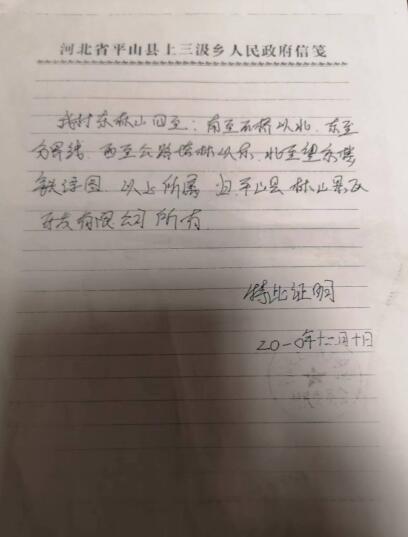 河北省平山县上三汲乡人民政府信笺
我村东林山四至：南至石桥以北、东至
分界线、西至公路塔林以东、北至望东楼
以上所属归平山县林山景区
开发有限公司所有
特此证明
二〇一〇年十二月十日